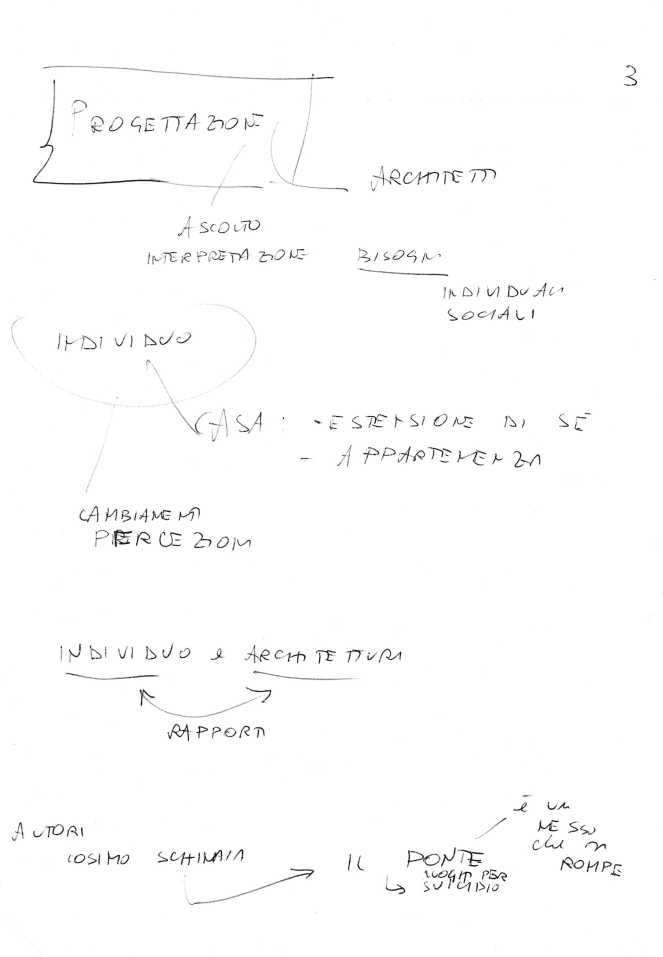 3
PROGETTAZIONE
ARCHITETTI
ASCOLTO
INTERPRETAZIONE BISOGNI
INDIVIDUALI
SOCIALI
INDIVIDUO
CASA: - ESTENSIONE DI SÉ
- APPARTENENZA
CAMBIAMENTI
PERCEZIONI
INDIVIDUO e ARCHITETTURA
RAPPORTI
è UN
NESSO
che si
ROMPE
AUTORI
COSIMO SCHINAIA IL PONTE
PER
SUICIDIO